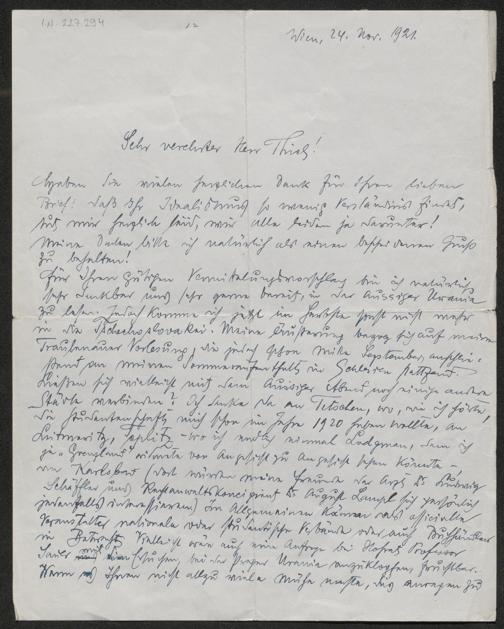 I.N. 227.294
Wien, 24. Nov. 1921.
Sehr verehrter Herr Thiel!
Haben Sie vielen herzlichen Dank für Ihren lieben
Brief! Daß Ihr Idealismus so wenig Verständnis findet,
tut mir herzlich leid, wir alle leiden ja darunter!
Meine Daten bitte ich natürlich als einen bescheidenen Gruß
zu behalten!
Für Ihren gütigen Vermittelungsvorschlag bin ich natürlich
sehr dankbar und sehr gerne bereit, in der Aussiger Urania
zu lesen. Jedoch komme ich jetzt im Herbste sonst nicht mehr
in die Tschechoslovakei. Meine Äußerung bezog sich auf meine
Trautenauer Vorlesung, die jedoch schon Mitte September, anschlie-
ßend an meinen Sommeraufenthalt in Schlesien stattfand.
Ließen sich vielleicht mit dem Aussiger Abend noch einige andere
Städte verbinden? Ich denke da an Tetschen, wo, wie ich hörte,
die Studentenschaft mich schon im Jahre 1920 haben wollte, an
Leitmeritz, Teplitz – wo ich endlich einmal Lodgman, dem ich
ja "Grenzland" widmete von Angesicht zu Angesicht sehen könnte –
an Karlsbad (dort würden meine Freunde der Arzt Dr. Ludwig
Schäffler und Rechtsanwaltskonzipient Dr. August Lampl sich persönlich
jedenfalls interessieren) Im Allgemeinen kämen als offizielle
Veranstalter nationale oder studentische Verbände oder auch Buchhändler
in Betracht. Vielleicht wäre auch eine Anfrage bei Hofrat Professor
Sauer mit dem Ersuchen, bei der Prager Urania anzuklopfen, fruchtbar.
Wenn es Ihnen nicht allzu viele Mühe machte, dies anregen zu